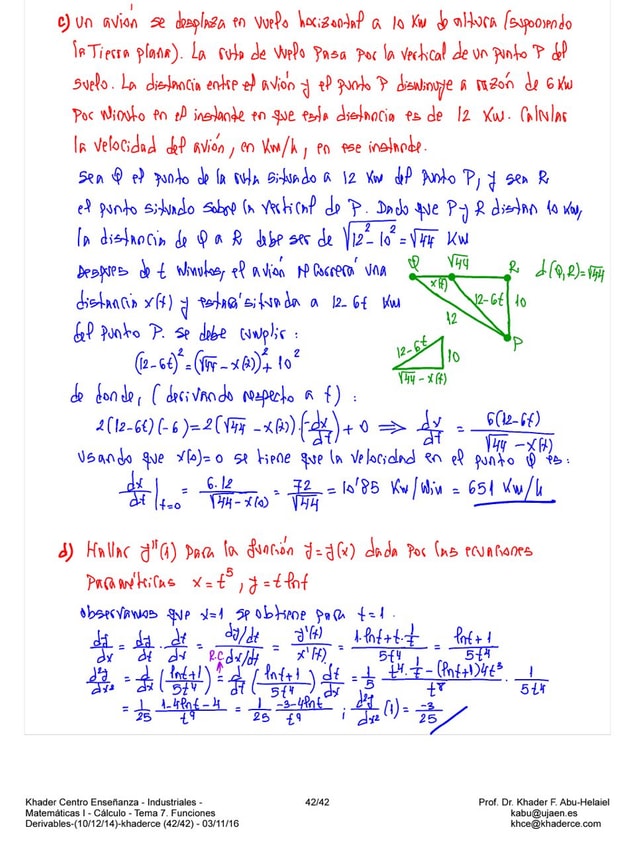 c) Un avión se desplaza en vuelo horizontal a 10 Km de altura (suponiendo
la Tierra plana). La ruta de vuelo pasa por la vertical de un punto P del
suelo. La distancia entre el avión y el punto P disminuye a razón de 6 Km
por minuto en el instante en que esta distancia es de 12 Km. Calcular
la velocidad del avión, en Km/h, en ese instante.
Sea Q el punto de la ruta situado a 12 Km del punto P, y sea R
el punto situado sobre la vertical de P. Dado que P y R distan 10 Km,
la distancia de Q a R debe ser de √(12²-10²) = √44 Km
Después de t minutos, el avión recorrerá una
distancia x(t) y estará situada a 12-6t Km
del punto P. Se debe cumplir:
(12-6t)² = (√44 - x(t))² + 10²
Q √44 R d(Q,R)=√44
x(t)
12-6t 10
12
P
12-6t 10
√44 - x(t)
de donde, (derivando respecto a t):
2(12-6t)(-6) = 2(√44 - x(t))·(-dx/dt) + 0 ⟹ dx/dt = 6(12-6t)/(√44 - x(t))
Usando que x(0)=0 se tiene que la velocidad en el punto Q es:
dx/dt|t=0 = 6·12/(√44 - x(0)) = 72/√44 = 10'85 Km/min = 651 Km/h
d) Hallar y''(1) para la función y=y(x) dada por las ecuaciones
paramétricas x=t⁵, y=t lnt
Observamos que x=1 se obtiene para t=1.
dy/dx = dy/dt · dt/dx = (dy/dt)/(dx/dt) = y'(t)/x'(t) = (1·lnt+t·1/t)/5t⁴ = (lnt+1)/5t⁴
R.C
d²y/dx² = d/dx((lnt+1)/5t⁴) = d/dt((lnt+1)/5t⁴) dt/dx = 1/5 (t⁴·1/t - (lnt+1)4t³)/t⁸ · 1/5t⁴
= 1/25 (1-4lnt-4)/t⁹ = 1/25 (-3-4lnt)/t⁹ ; d²y/dx²(1) = -3/25
Khader Centro Enseñanza - Industriales - 42/42 Prof. Dr. Khader F. Abu-Helaiel
Matemáticas I - Cálculo - Tema 7. Funciones kabu@ujaen.es
Derivables-(10/12/14)-khaderce (42/42) - 03/11/16 khce@khaderce.com